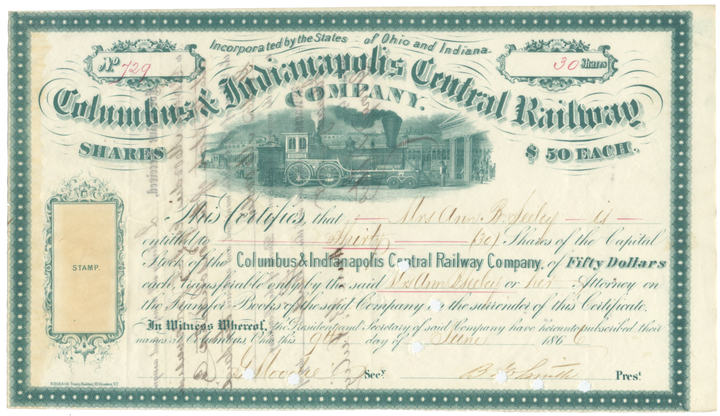 Incorporated by the States of Ohio and Indiana
No 729
30 Shares
Columbus & Indianapolis Central Railway
COMPANY.
SHARES
$50 EACH.
This Certifies, that Mrs Ann B. Seeley is
entitled to Thirty (30) Shares of the Capital
Stock of the Columbus & Indianapolis Central Railway Company, of Fifty Dollars
each, transferable only by the said Mrs Ann B Seeley or her Attorney on
the Transfer Books of the said Company on the surrender of this Certificate.
STAMP.
In Witness Whereof, the President and Secretary of said Company have hereunto subscribed their
names at Columbus, Ohio this 9th day of June 1866
Secy
B. E. Smith Prest